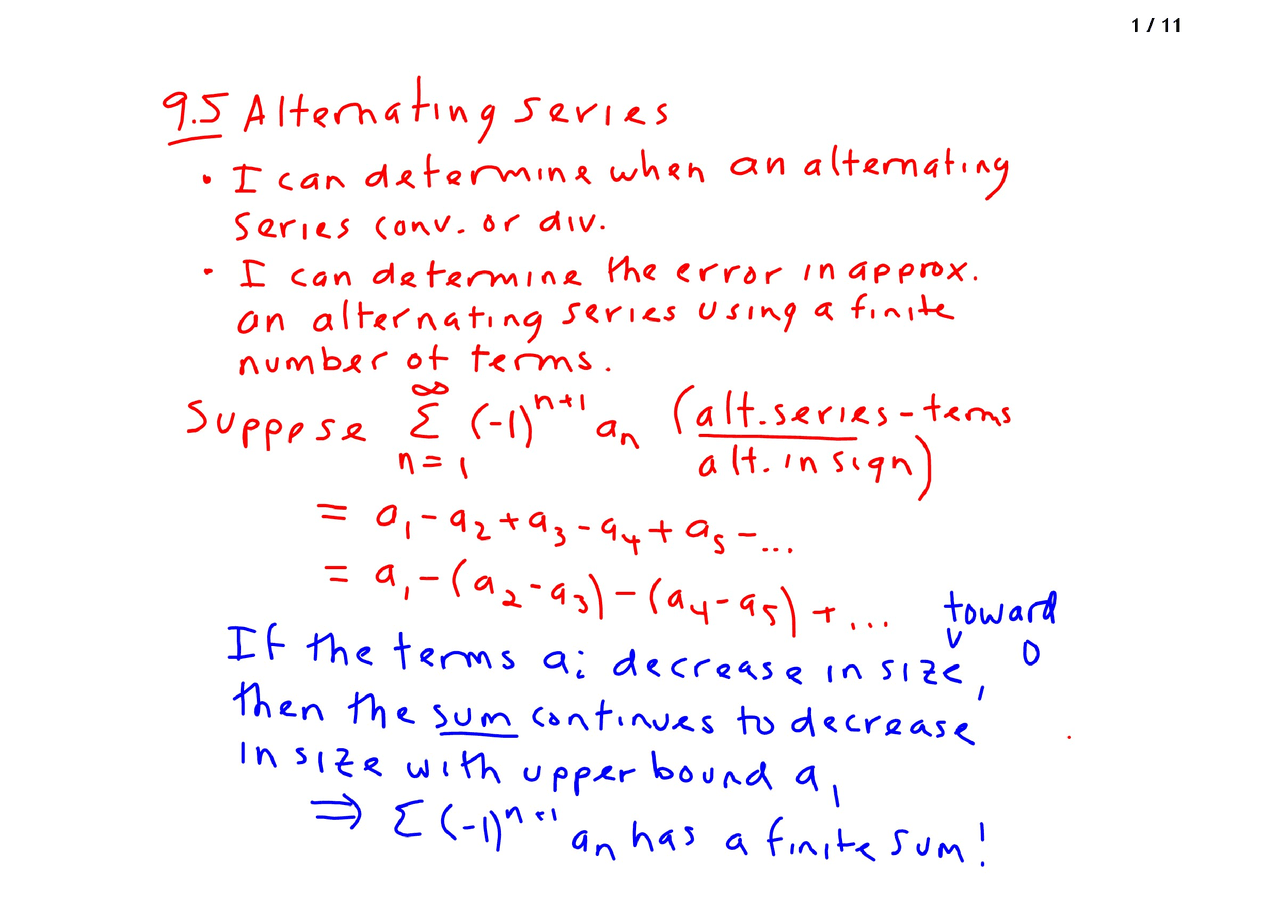 1 / 11
9.5 Alternating series
• I can determine when an alternating
series conv. or div.
• I can determine the error in approx.
an alternating series using a finite
number of terms.
Suppose ∑_{n=1}^{∞} (-1)^{n+1} a_n (alt. series - terms
alt. in sign)
= a_1 - a_2 + a_3 - a_4 + a_5 - ...
= a_1 - (a_2 - a_3) - (a_4 - a_5) + ...
toward
If the terms a_i decrease in size ∨ 0,
then the sum continues to decrease
in size with upper bound a_1
⇒ ∑ (-1)^{n+1} a_n has a finite sum!